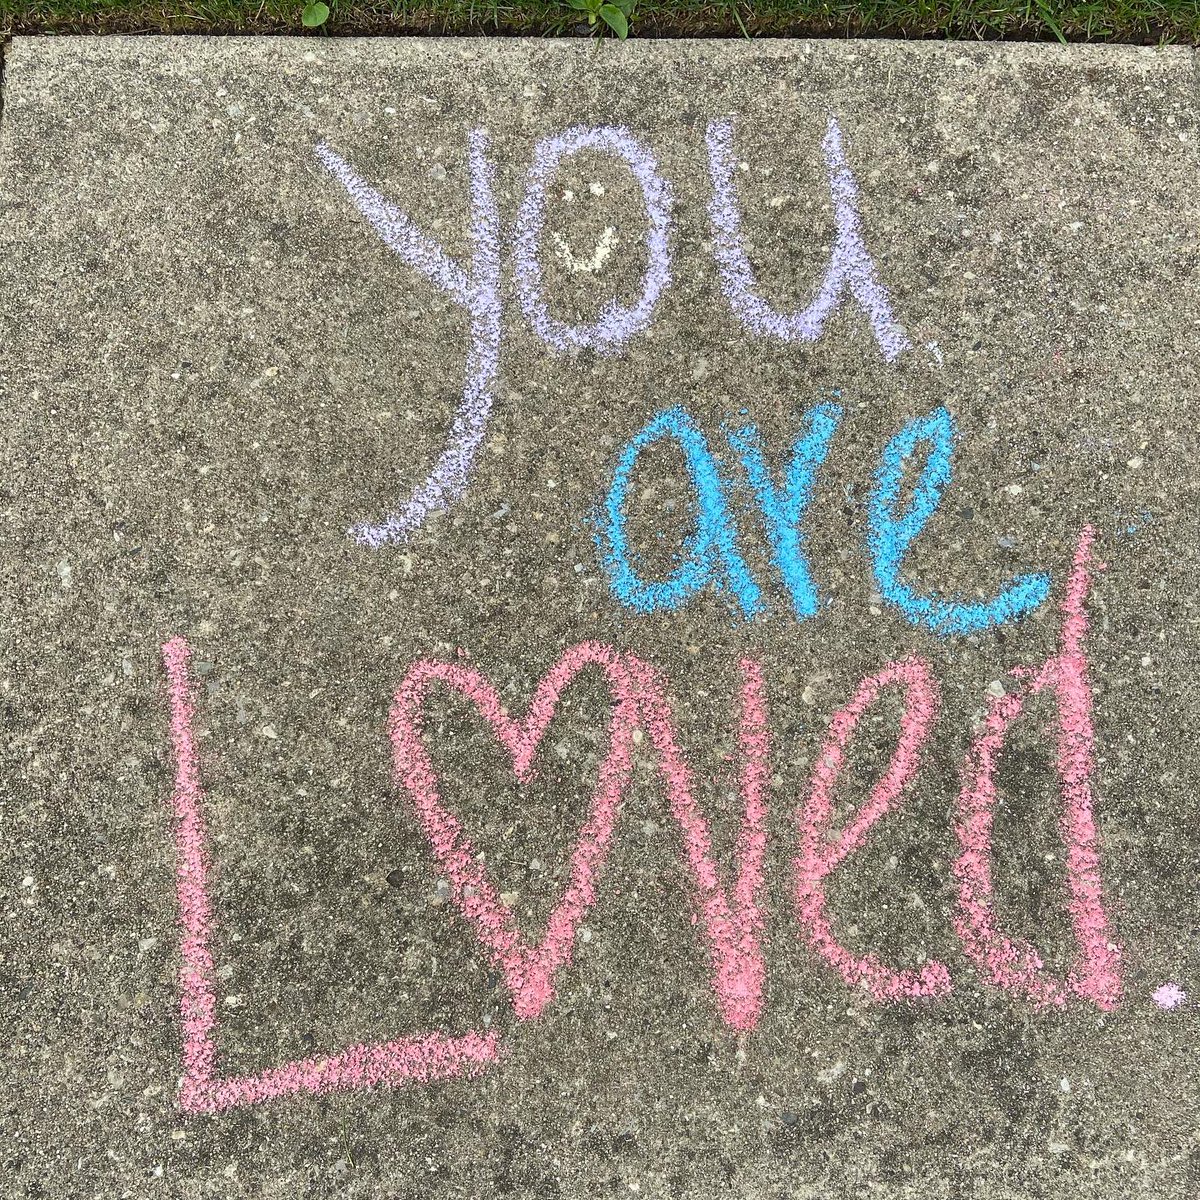 you
are
Loved.